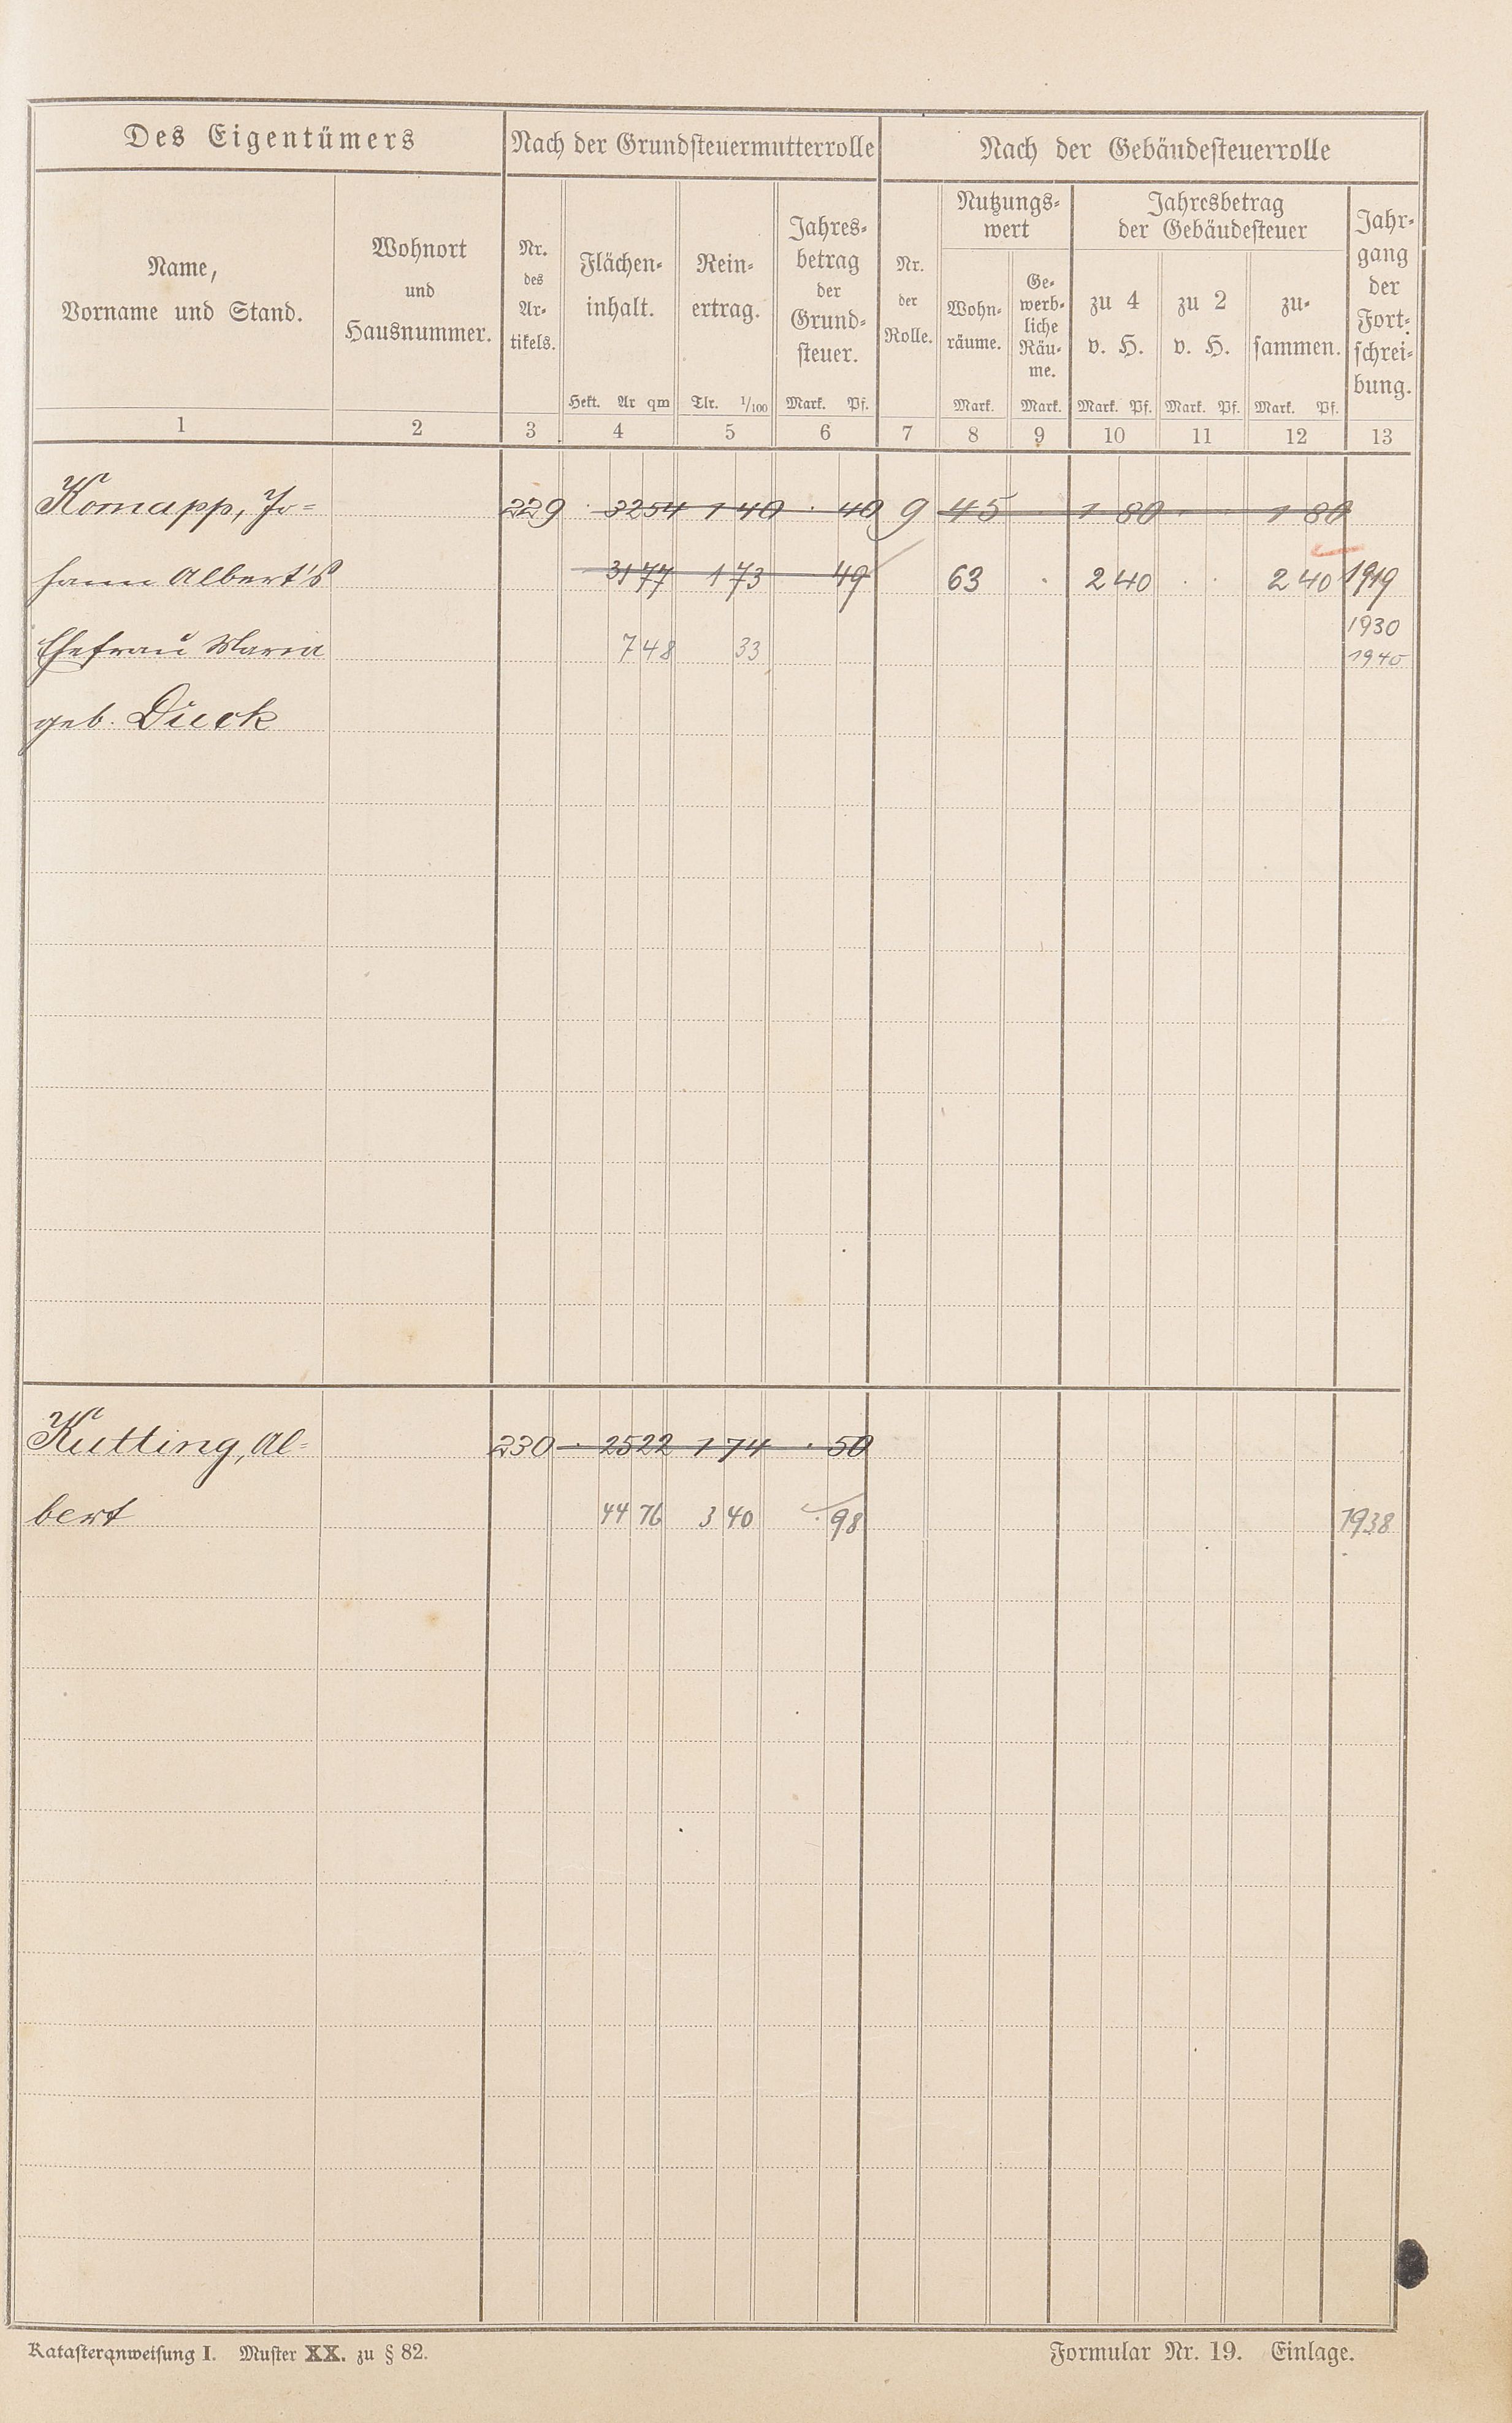 Des Eigentümers Nach der Grundsteuermutterrolle Nach der Gebäudesteuerrolle
Name,
Vorname und Stand.
Wohnort
und
Hausnummer.
Nr.
des
Ar-
tikels.
Flächen-
inhalt.
Hekt. Ar qm
Rein-
ertrag.
Tlr. 1/100
Jahres-
betrag
der
Grund-
steuer.
Mark. Pf.
Nr.
der
Rolle.
Nutzungs-
wert
Wohn-
räume.
Mark.
Ge-
werb-
liche
Räu-
me.
Mark.
Jahresbetrag
der Gebäudesteuer
zu 4
v. H.
Mark. Pf.
zu 2
v. H.
Mark. Pf.
zu-
sammen.
Mark. Pf.
Jahr-
gang
der
Fort-
schrei-
bung.
1 2 3 4 5 6 7 8 9 10 11 12 13
Komapp, Jo= 229 · 32 54 1 40 · 40 9 45 · 1 80 · · 1 80
hann Albert's 31 77 1 73 49 63 · 2 40 · · 2 40 1919
1930
Ehefrau Maria 7 48 33 1940
geb. Dück
Kutting, Al= 230 · 25 22 1 74 · 50
bert 44 76 3 40 · 98 1938
Katasteranweisung I. Muster XX. zu § 82. Formular Nr. 19. Einlage.